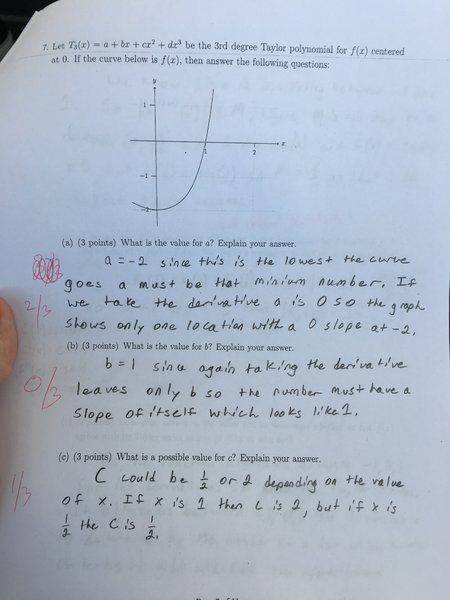 7. Let T₃(x) = a + bx + cx² + dx³ be the 3rd degree Taylor polynomial for f(x) centered
at 0. If the curve below is f(x), then answer the following questions:
y
1
x
1
2
-1
-2
(a) (3 points) What is the value for a? Explain your answer.
a = -2 since this is the lowest the curve
goes a must be that minium number. If
we take the derivative a is 0 so the graph
2/3
shows only one location with a 0 slope at -2.
(b) (3 points) What is the value for b? Explain your answer.
b = 1 since again taking the derivative
0/3
leaves only b so the number must have a
slope of itself which looks like 1.
(c) (3 points) What is a possible value for c? Explain your answer.
C could be 1/2 or 2 depending on the value
1/3
of x. If x is 1 then C is 2, but if x is
1/2 the C is 1/2.